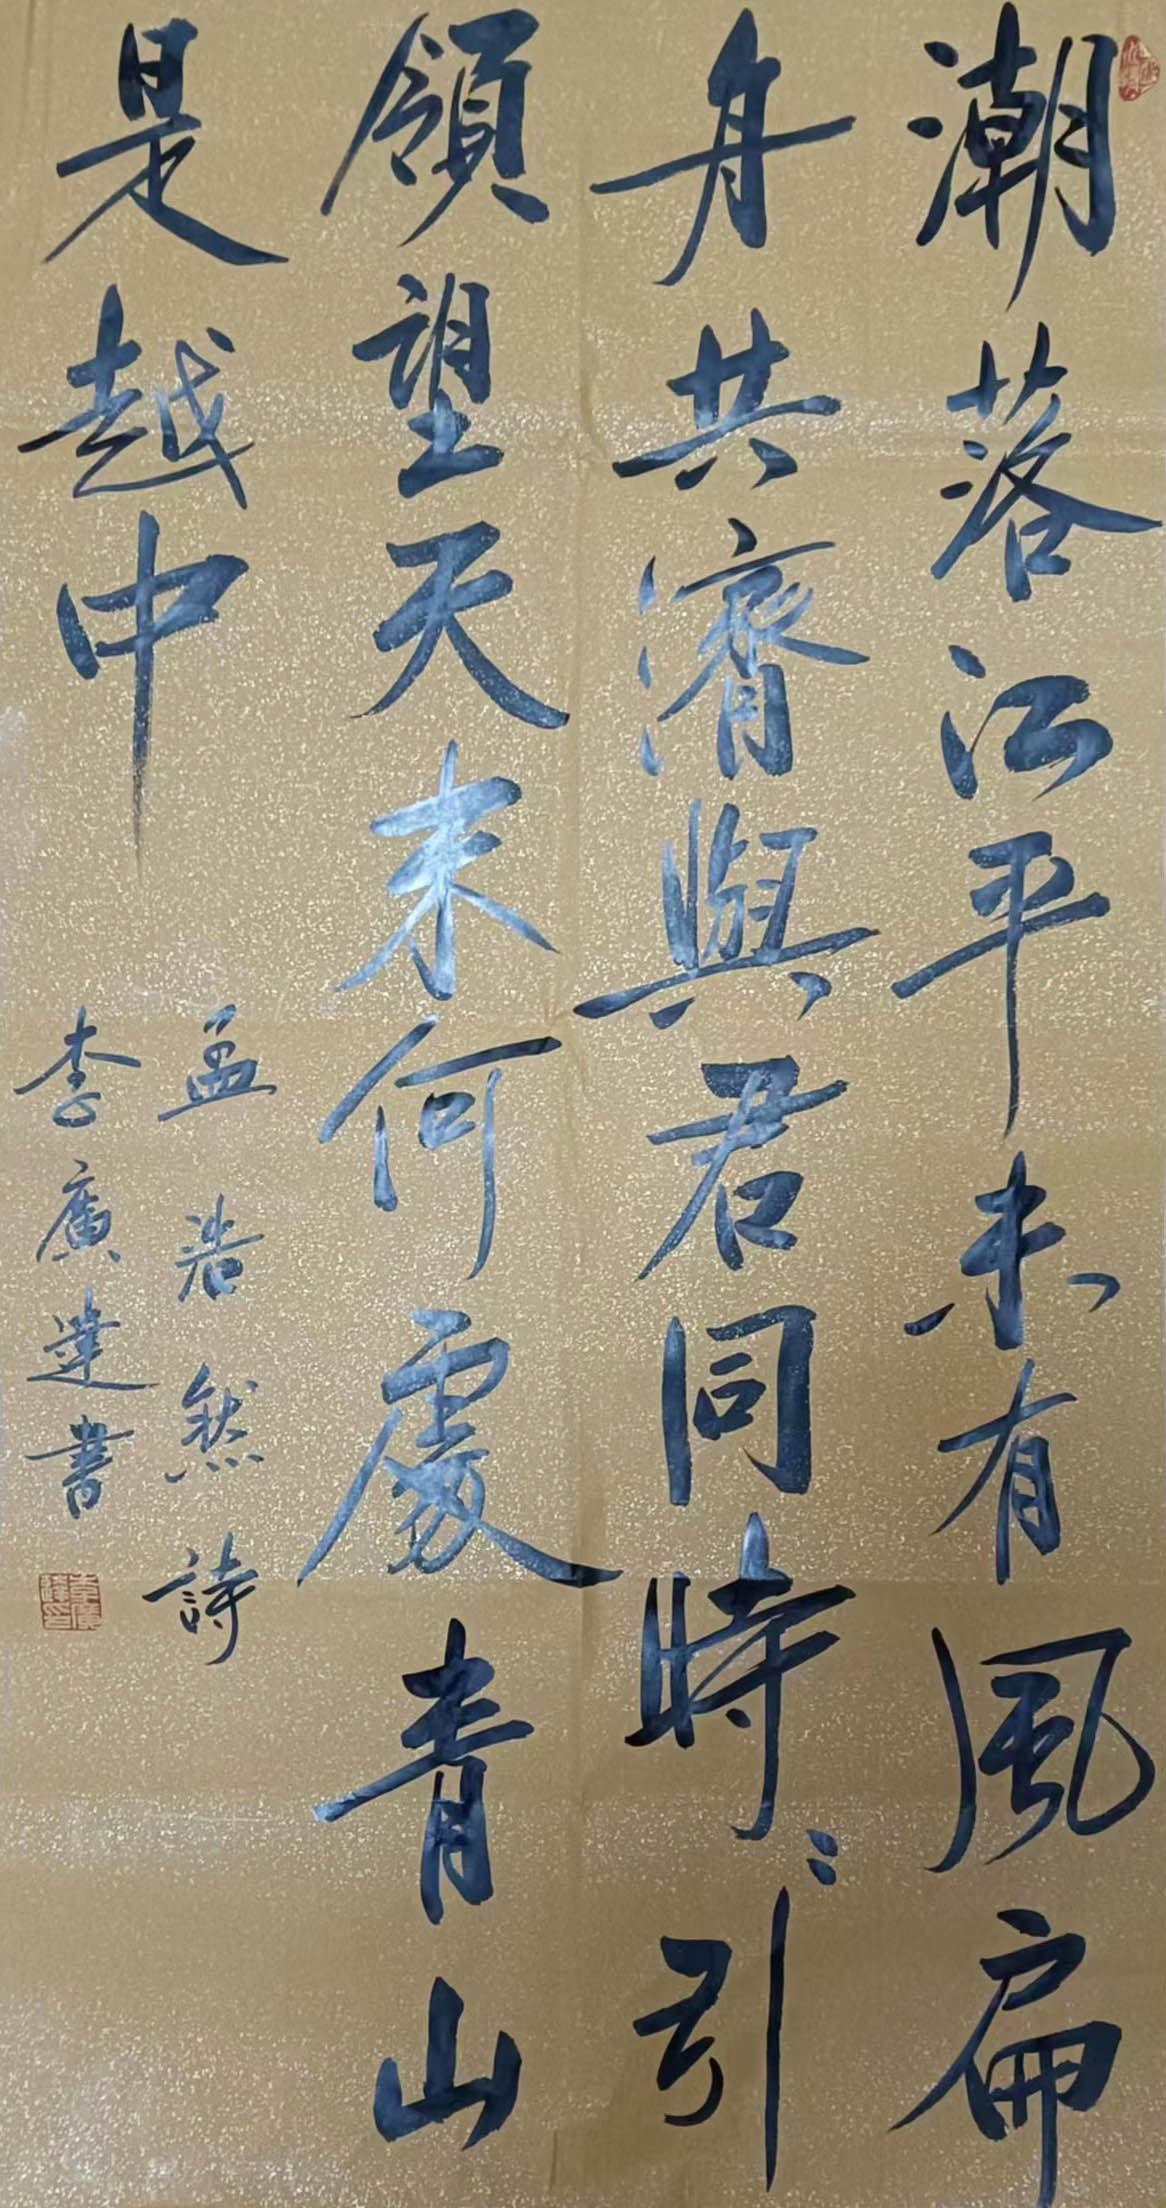 潮落江平未有風扁
舟共濟與君同時〻引
領望天末何處青山
是越中
孟浩然詩
李廣達書